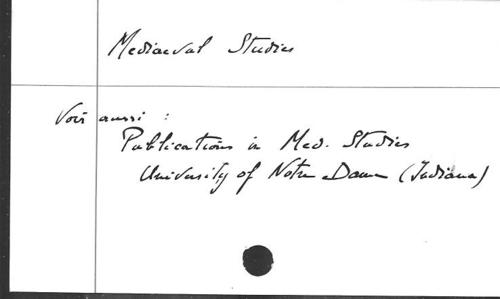 Mediaeval Studies
Voir aussi :
Publications in Med. Studies
University of Notre Dame (Indiana)